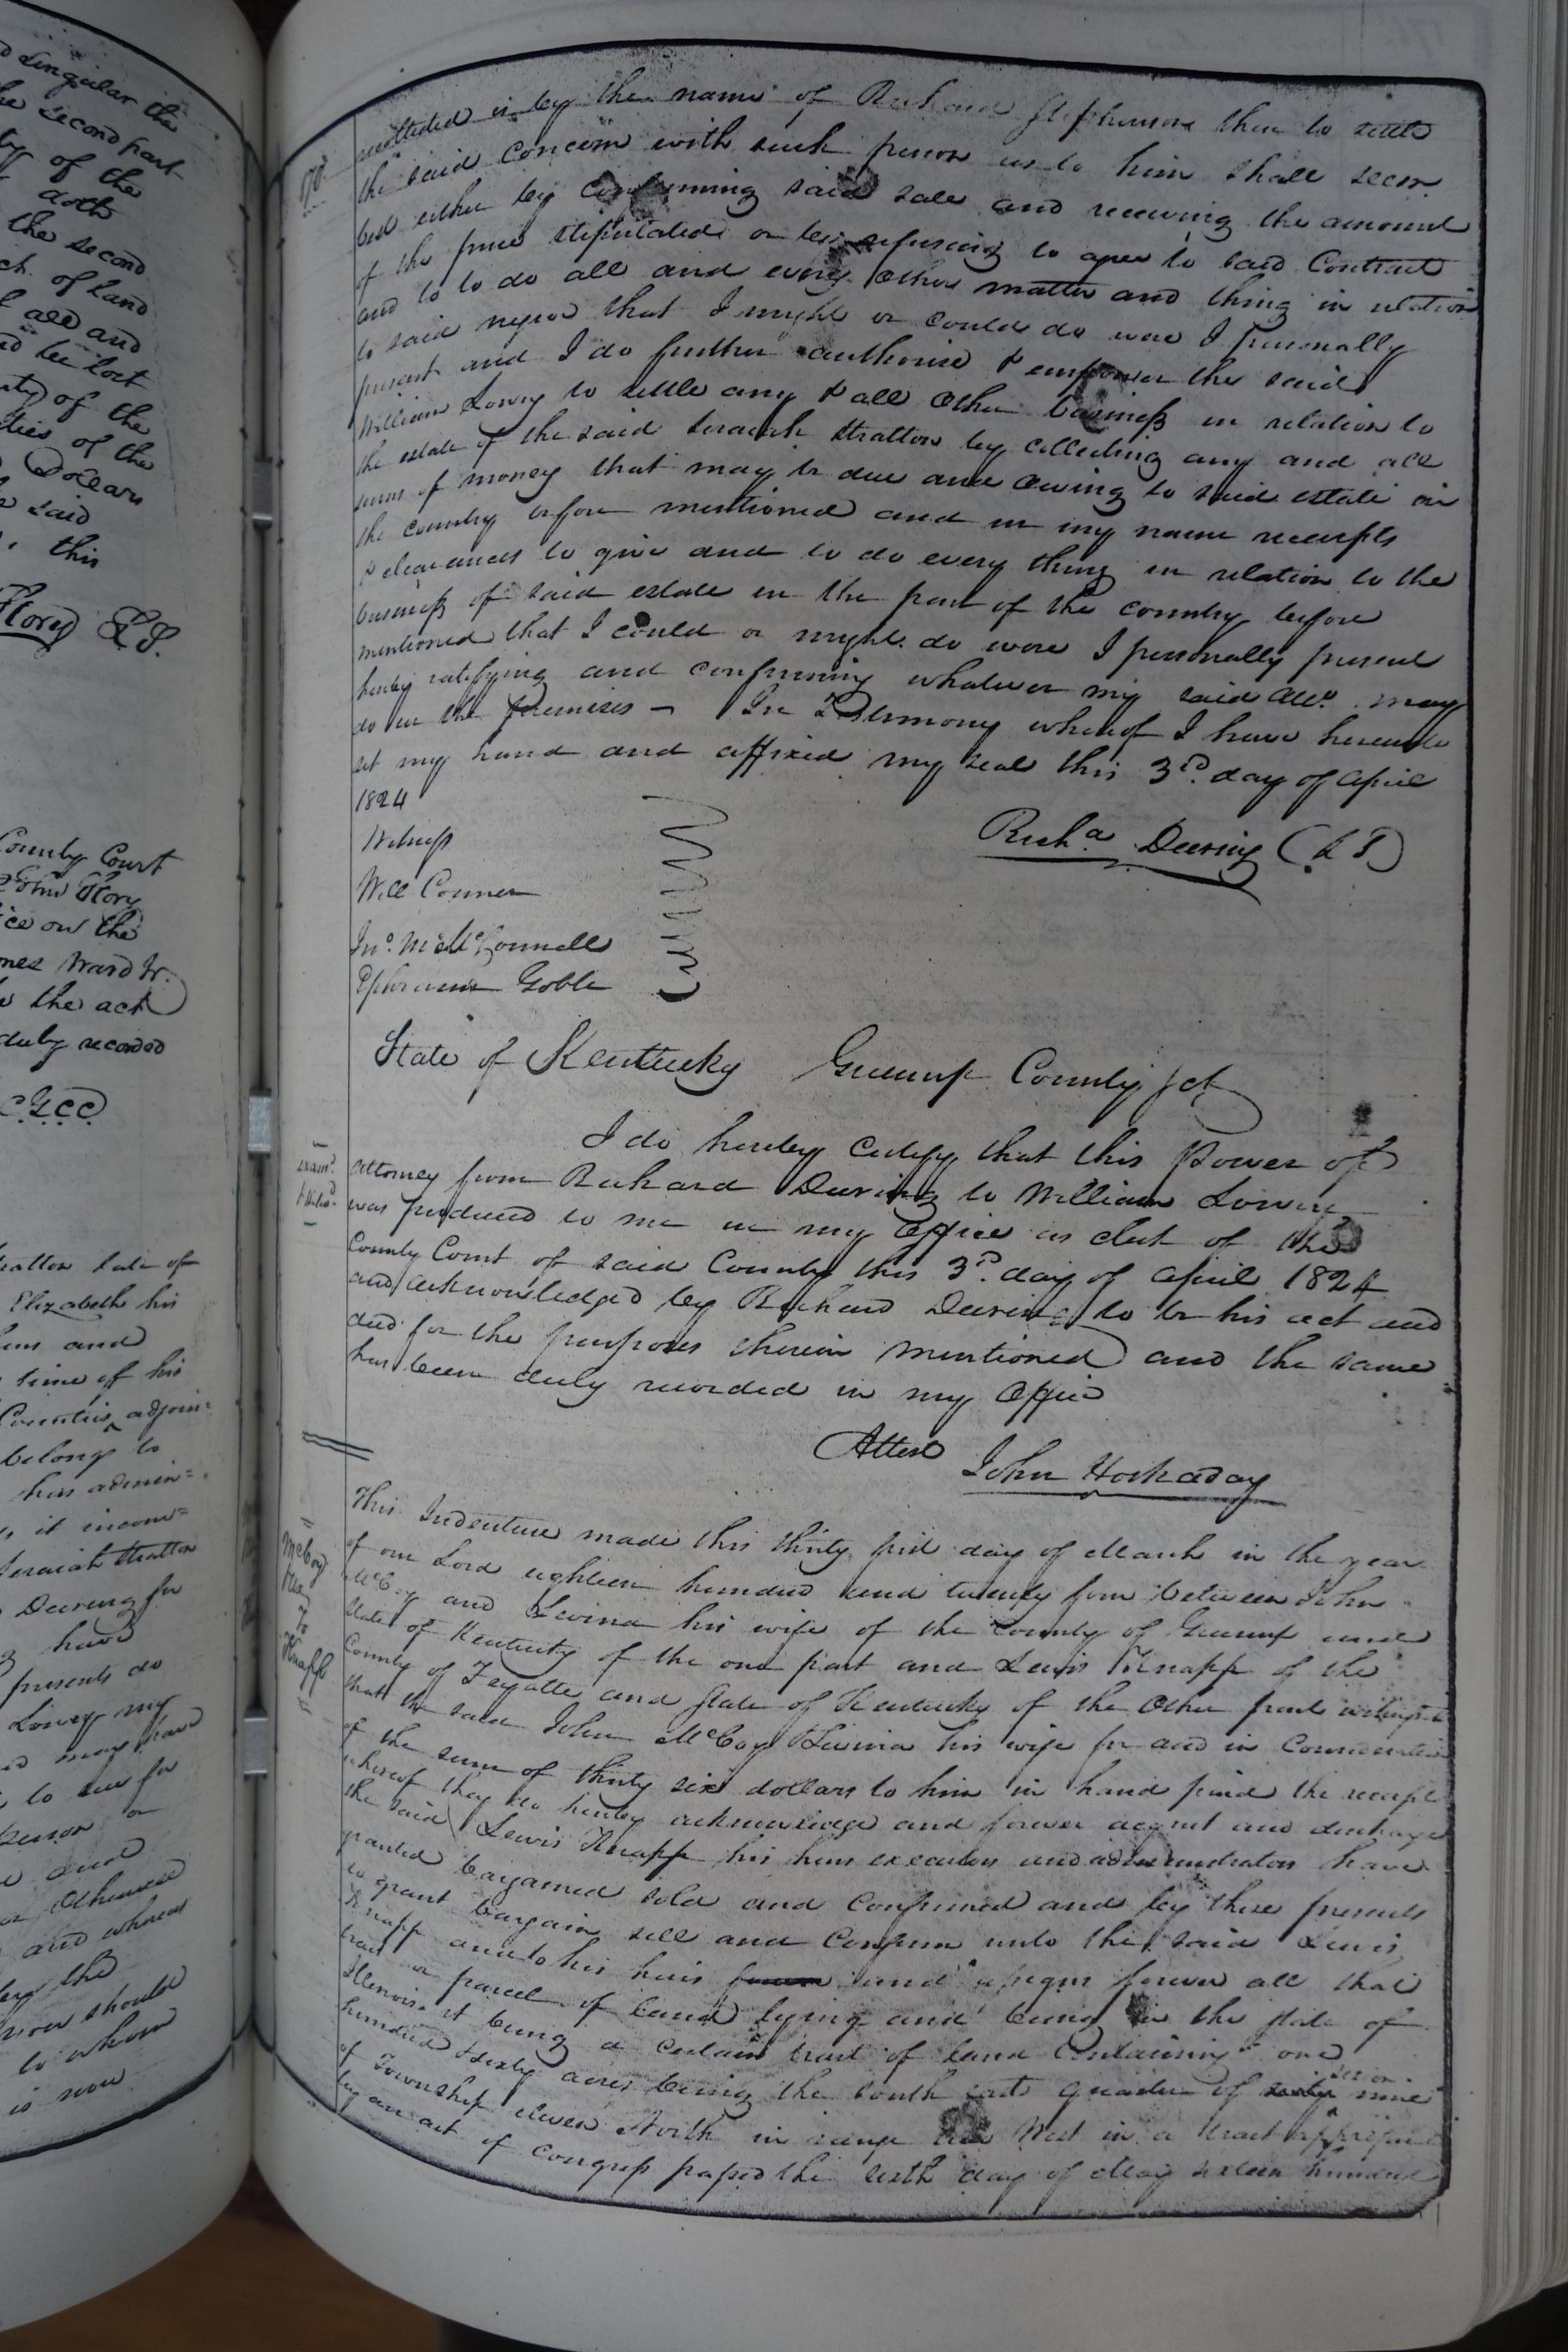 d singular the
he second part
by of the
doth
the second
ch of land
f all and
nd be lost
nty of the
ties of the
Dollars
he said
this
Story L.S.
County Court
John Story
ice on the
mes Ward Jr.
to the act
duly recorded
C.G.C.C.
ratton late of
Elizabeth his
him and
time of his
Counties adjoin=
belong to
has admin=
it incon=
Seraiah Stratton
Deering for
have
presents do
Lowry my
may have
to sue for
person or
and
or otherwise
and whereas
by the
now should
to whom
is now
in by the name of Richard Stephenson then to settle
the said concern with such person as to him shall seem
best either by confirming said sale and receiving the amount
of the price stipulated or by refusing to agree to said Contract
and to to do all and every other matter and thing in relation
to said negroe that I might or could do were I personally
present and I do further authorise & empower the said
William Lowry to settle any & all other business in relation to
the estate of the said Seraiah Stratton by collecting any and all
sums of money that may be due and owing to said estate in
the country before mentioned and in my name receipts
& clearances to give and to do every thing in relation to the
business of said estate in the part of the country before
mentioned that I could or might do were I personally present
hereby ratifying and confirming whatever my said atto. may
do in the premises — In Testimony whereof I have hereunto
set my hand and affixed my seal this 3rd. day of April
1824
Witness
Richd. Deering (LS)
Will Conner
Jno. M McConnell
Ephraim Goble
State of Kentucky Greenup County Sct
I do hereby certify that this Power of
exam.
attorney from Richard Deering to William Lowry
was produced to me in my Office as clerk of the
County Court of said County this 3rd. day of April 1824
and acknowledged by Richard Deering to be his act and
deed for the purposes therein mentioned and the same
has been duly recorded in my office
Attest John Hockaday
McCoy
&ux
To
Knapp
This Indenture made this thirty first day of March in the year
of our Lord eighteen hundred and twenty four between John
McCoy and Levina his wife of the County of Greenup and
State of Kentucky of the one part and Lewis Knapp of the
County of Fayette and State of Kentucky of the other part witnesseth
that the said John McCoy & Levina his wife for and in Consideration
of the sum of thirty six dollars to him in hand paid the receipt
whereof they do hereby acknowledge and forever acquit and discharge
the said Lewis Knapp his heirs executors and administrators have
granted bargained sold and confirmed and by these presents
do grant bargain sell and confirm unto the said Lewis
Knapp and to his heirs forever and assigns forever all that
tract or parcel of land lying and being in the state of
Illenois it being a certain tract of land containing one
hundred & sixty acres being the south east quarter of nine
of Township eleven North in range West in a tract appropriated
by an act of congress passed the sixth day of May sixteen hundred